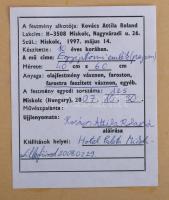 A festmény alkotója: Kovács Attila Roland
Lakcím: H-3508 Miskolc, Nagyváradi u. 26.
Szül.: Miskolc, 1997. május 14.
Készült: 10 éves korában.
A mű címe: Egyiptomi emlék
Mérete: 40 cm x 60 cm
Anyaga: olajfestmény vásznon, faroston,
farostra feszített vásznon, egyéb.
A festmény egyedi sorszáma:
Miskolc (Hungary), 20
Művészpéldány:
Ujjlenyomata: Kovács Attila Roland
aláírása
Kiállítások helyei: Hotel